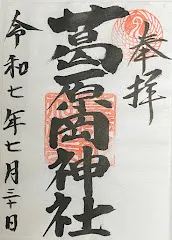 奉拝
葛原岡神社
令和七年七月三十日